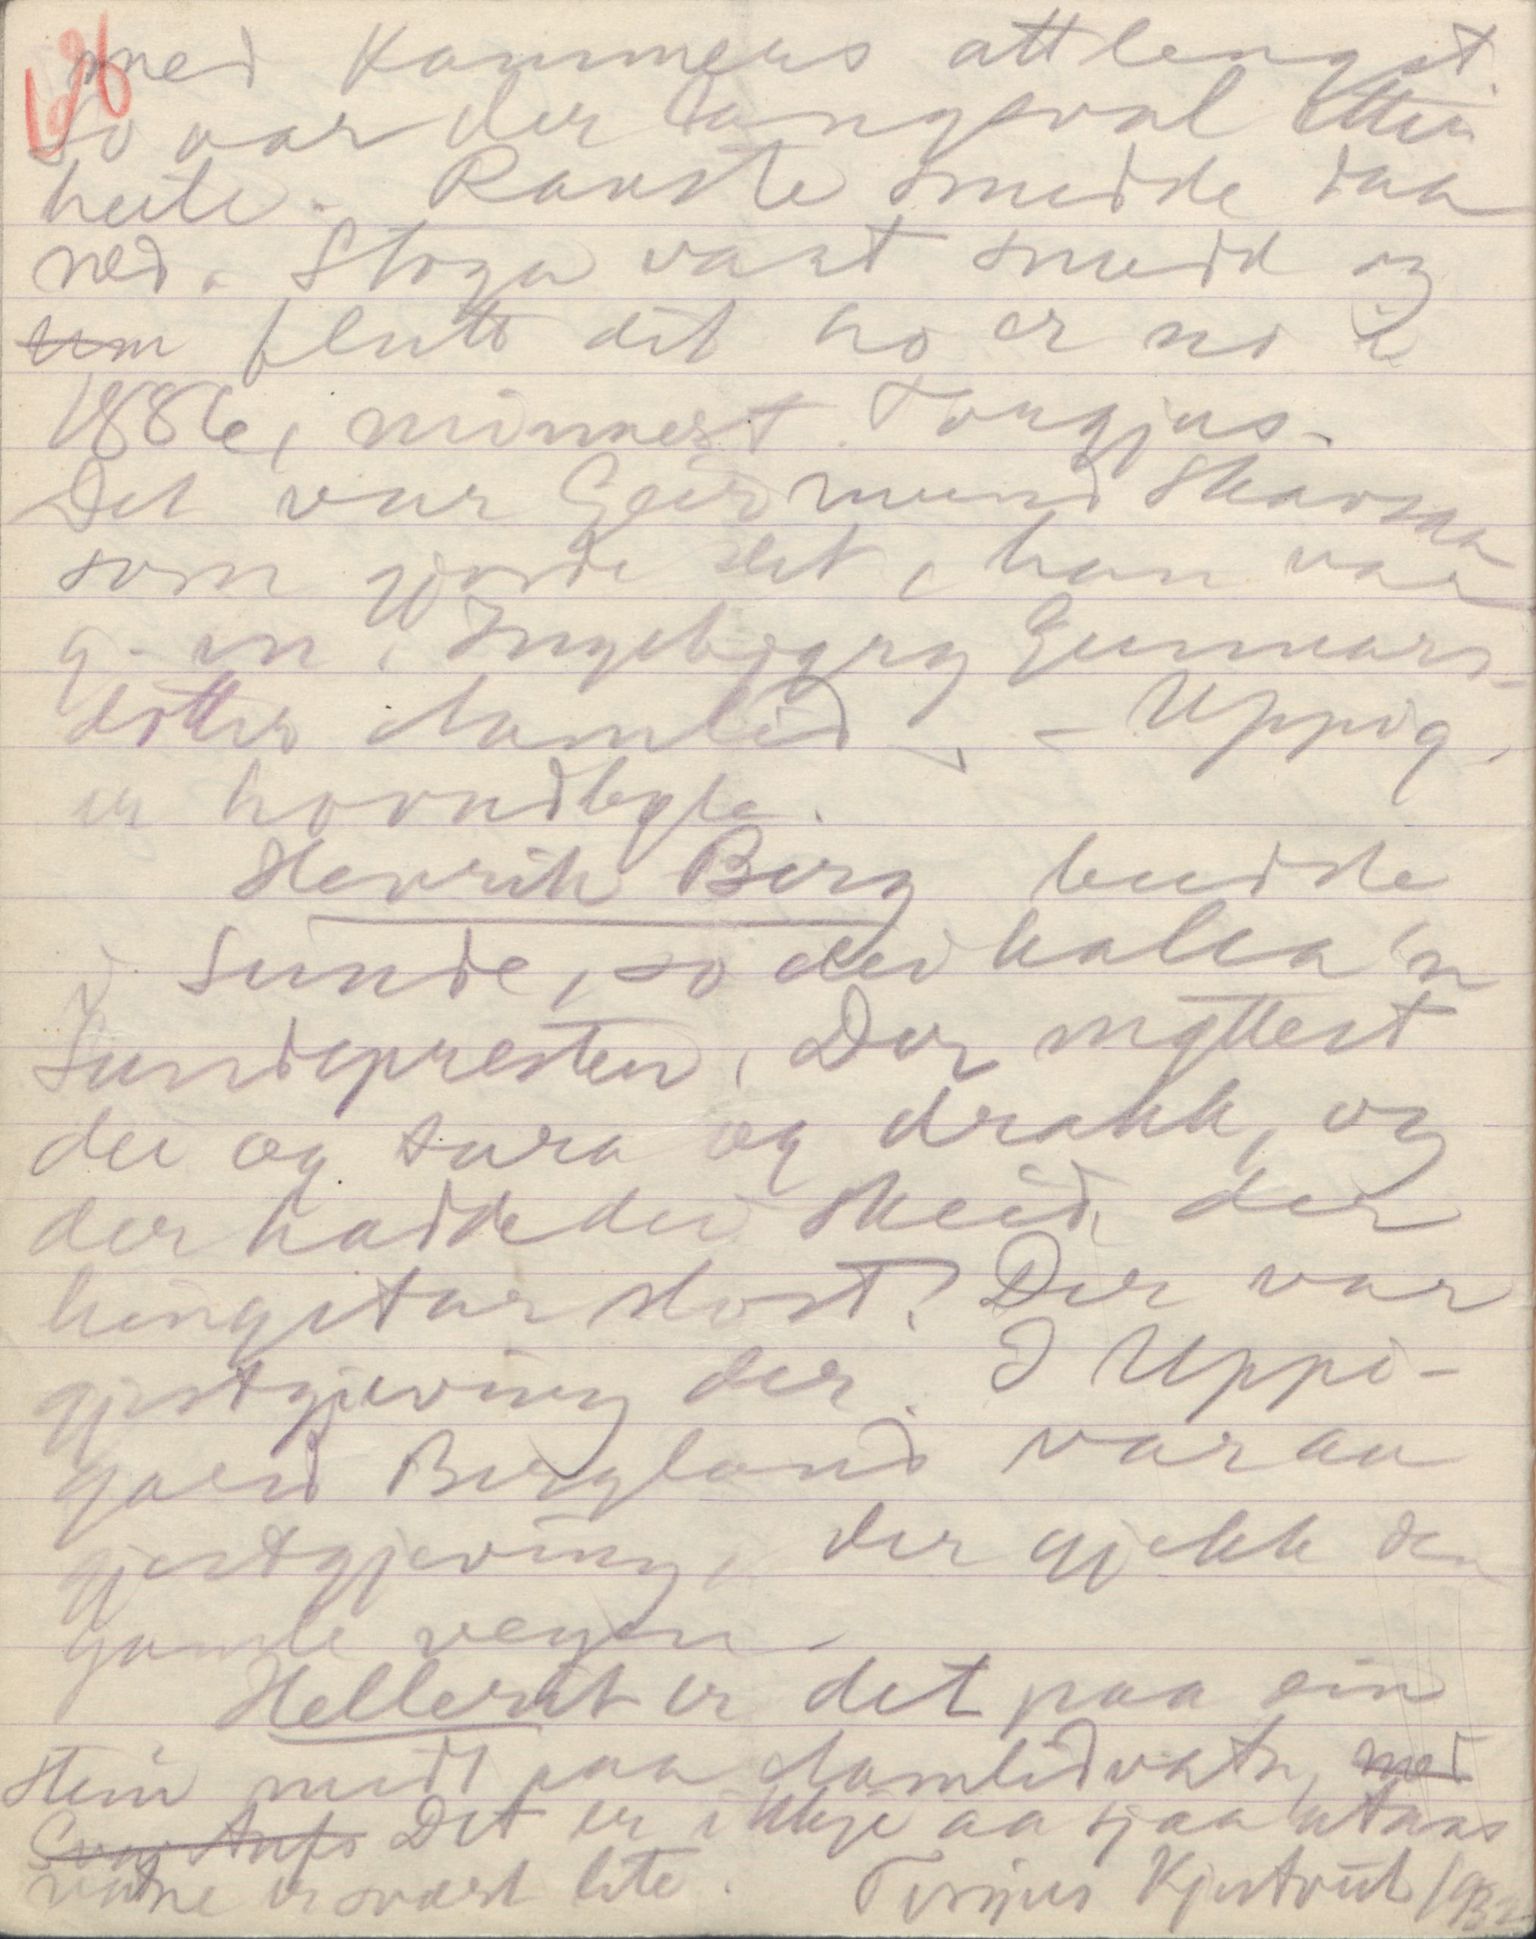 196
med Kammers attlengst.
So var der langsval etter
heile. Raaste sneidde daa
ned. Stoga vart sneidd og
um flutt dit ho er no i
1886, minnest Torgjus.
Det var Geirmund Skarsaa
som gjorde det, han var
g. m. Ingebjørg Gunnars-
dotter Aamlid. - Uppig.
er hovudbøle.
Henrik Berg budde
i Sunde, so dei kalla'n
Sundepresten. Der møttest
dei og svira og drakk, og
der hadde dei skeid, der
hingstar slost? Der var
gjestgjeving der. I Uppi-
gard Bergland var au
gjestgjeving, der gjekk den
gamle vegen.
Hellerit er det paa ein
stein midt paa Aamlidvatn, med
Det er ikkje aa sjaa utans
vatne er svært lite. Torgjus Kjestveit 1932